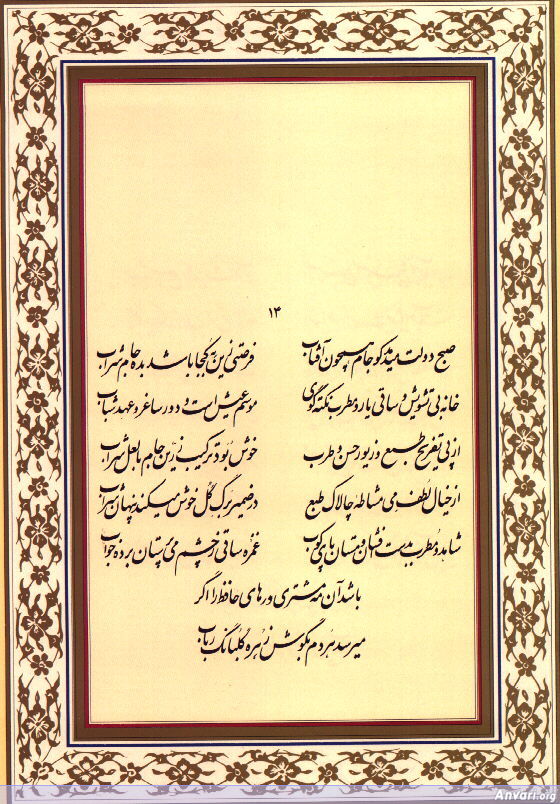 ۱۴
صبح دولت میدمد کو جام همچون آفتاب فرصتی زین به کجا باشد بده جام شراب
خانه بی تشویش و ساقی یار و مطرب نکته گوی موسم عیش است و دور ساغر و عهد شباب
از پی تفریح طبع و زیور حسن و طرب خوش بود ترکیب زرین جام با لعل شراب
از خیال لطف می مشاطه چالاک طبع در ضمیر برگ گل خوش میکند پنهان شراب
شاهد و مطرب بدست افشان و مستان پای کوب غمزه ساقی ز چشم می پرستان برده خواب
باشد آن مه مشتری درهای حافظ را اگر
میرسد هر دم بگوش زهره گلبانگ رباب
Anvari.org